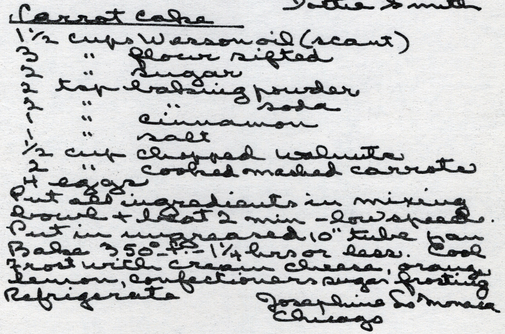 Dottie Smith
Carrot Cake
1 1/2 cups Wesson oil (scant)
3 " flour sifted
2 " sugar
2 tsp baking powder
2 " soda
1 " cinnamon
1 " salt
1/2 cup chopped walnuts
2 " cooked mashed carrots
4 eggs
Put all ingredients in mixing
bowl + beat 2 min - low speed.
Put in ungreased 10" tube pan
Bake 350° - 1 1/4 hrs or less. Cool
Frost with cream cheese, orange
lemon, confectioners sugar frosting
Refrigerate Josephine
Chicago